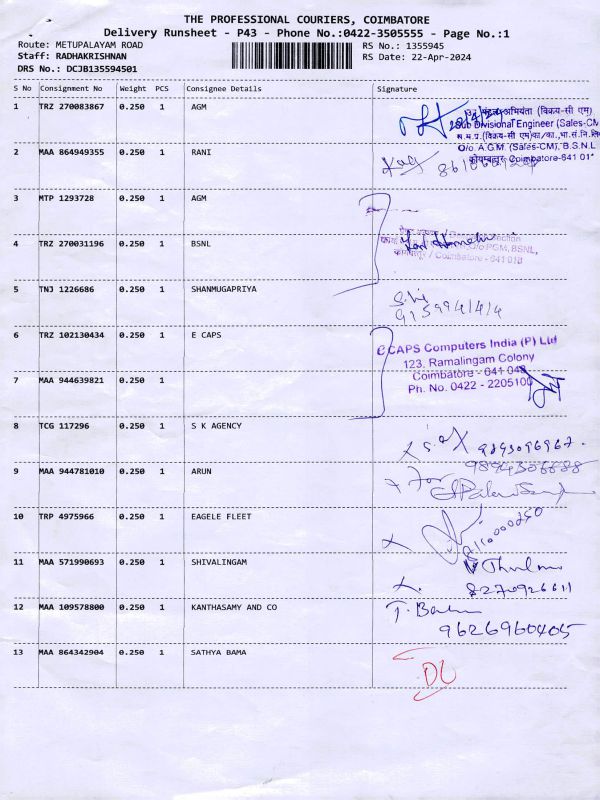 THE PROFESSIONAL COURIERS, COIMBATORE
Delivery Runsheet - P43 - Phone No.:0422-3505555 - Page No.:1
Route: METUPALAYAM ROAD
RS No.: 1355945
Staff: RADHAKRISHNAN
RS Date: 22-Apr-2024
DRS No.: DCJB135594501
S No Consignment No Weight PCS Consignee Details Signature
1 TRZ 270083867 0.250 1 AGM
अभियंता (विक्रय-सी एम)
Sub Divisional Engineer (Sales-CM
O/o. A.G.M. (Sales-CM), B.S.N.L
कोयम्बत्तूर Coimbatore-641 01
2 MAA 864949355 0.250 1 RANI
3 MTP 1293728 0.250 1 AGM
4 TRZ 270031196 0.250 1 BSNL
O/o PGM, BSNL,
/ Coimbatore - 641 018
5 TNJ 1226686 0.250 1 SHANMUGAPRIYA
6 TRZ 102130434 0.250 1 E CAPS
CAPS Computers India (P) Ltd
123, Ramalingam Colony
Coimbatore - 641 043
Ph. No. 0422 - 2205100
7 MAA 944639821 0.250 1
8 TCG 117296 0.250 1 S K AGENCY
9 MAA 944781010 0.250 1 ARUN
For
10 TRP 4975966 0.250 1 EAGELE FLEET
11 MAA 571990693 0.250 1 SHIVALINGAM
8270926611
12 MAA 109578800 0.250 1 KANTHASAMY AND CO
9626960405
13 MAA 864342904 0.250 1 SATHYA BAMA
DL